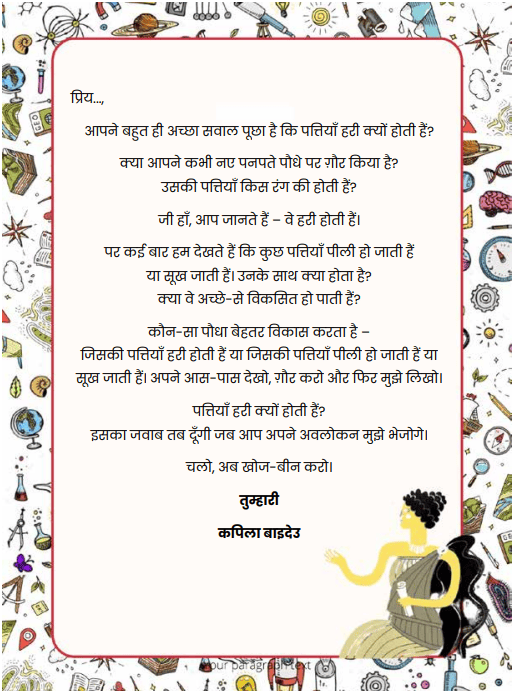 प्रिय...,
आपने बहुत ही अच्छा सवाल पूछा है कि पत्तियाँ हरी क्यों होती हैं?
क्या आपने कभी नए पनपते पौधे पर ग़ौर किया है?
उसकी पत्तियाँ किस रंग की होती हैं?
जी हाँ, आप जानते हैं – वे हरी होती हैं।
पर कई बार हम देखते हैं कि कुछ पत्तियाँ पीली हो जाती हैं
या सूख जाती हैं। उनके साथ क्या होता है?
क्या वे अच्छे-से विकसित हो पाती हैं?
कौन-सा पौधा बेहतर विकास करता है –
जिसकी पत्तियाँ हरी होती हैं या जिसकी पत्तियाँ पीली हो जाती हैं या
सूख जाती हैं। अपने आस-पास देखो, ग़ौर करो और फिर मुझे लिखो।
पत्तियाँ हरी क्यों होती हैं?
इसका जवाब तब दूँगी जब आप अपने अवलोकन मुझे भेजोगे।
चलो, अब खोज-बीन करो।
तुम्हारी
कपिला बाइदेउ
your paragraph text